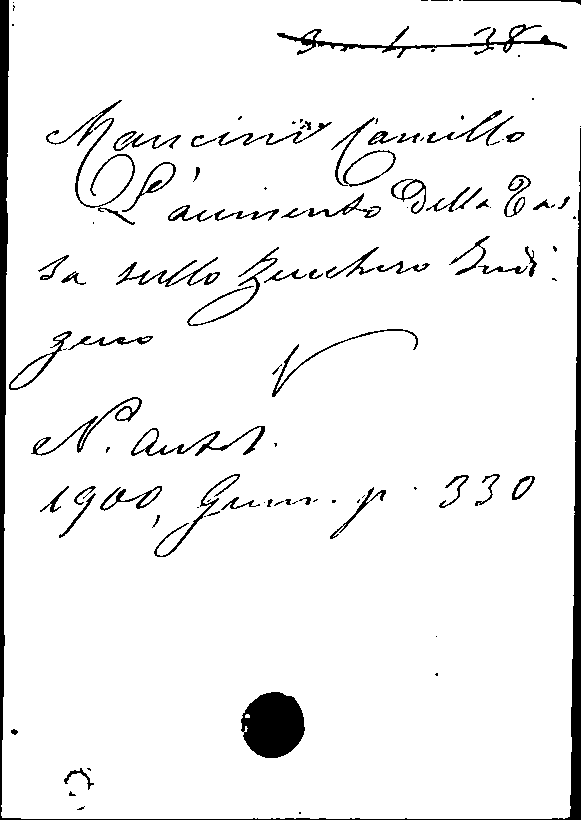 3 . 4 . 38
Mancini Camillo
L'aumento Della Tas
sa sullo Zucchero Indi.
geno
N. Antol.
1900, Gen. p. 330